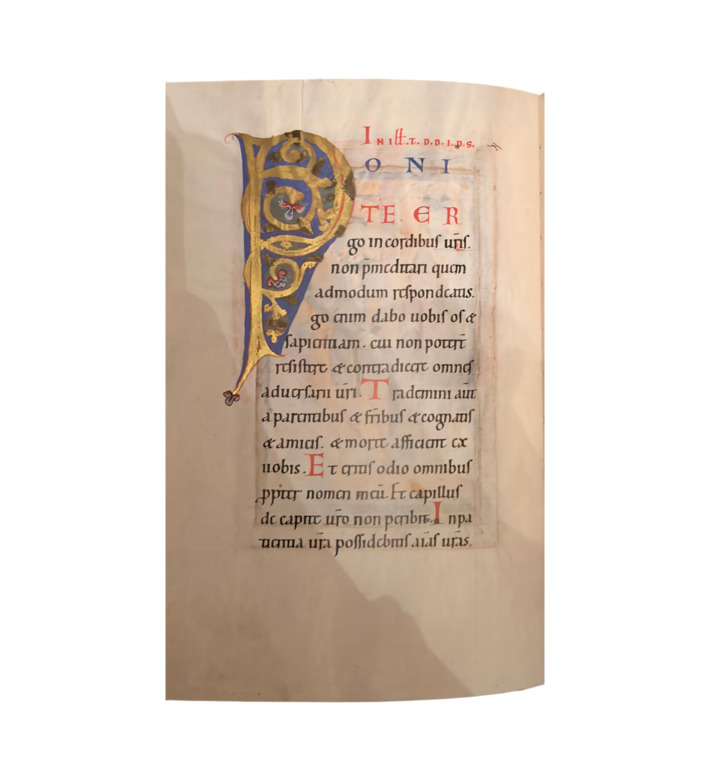 In illt. t. d. d. i. d. s.
PONI
TE ER
go in cordibus uris.
non pmeditari quem
admodum respondeatis.
go enim dabo uobis os &
sapientiam. cui non poterit
resistere & contradicere omnes
aduersarii uri. Trademini aut
a parentibus & fribus & cognatis
& amicis. & morte afficient ex
uobis. Et eritis odio omnibus
ppter nomen meū. Et capillus
de capite uro non peribit. In pa
tientia ura possidebitis aias uras.